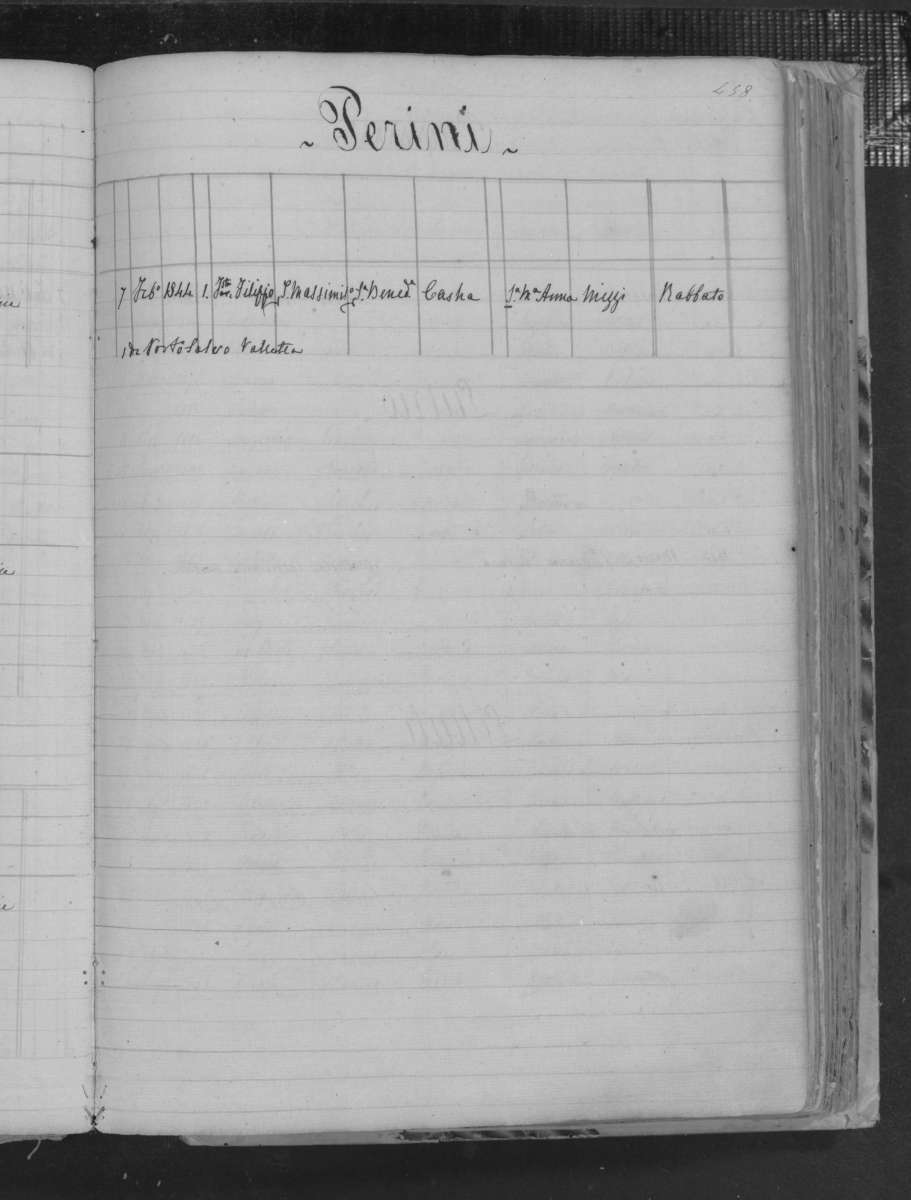 458
~ Perini ~
7 Feb° 1844 1. Filippo S. Massimil° S. Bened. Casha S. Ma Anna Mizzi Rabbato
1 da Porto Salvo Valletta